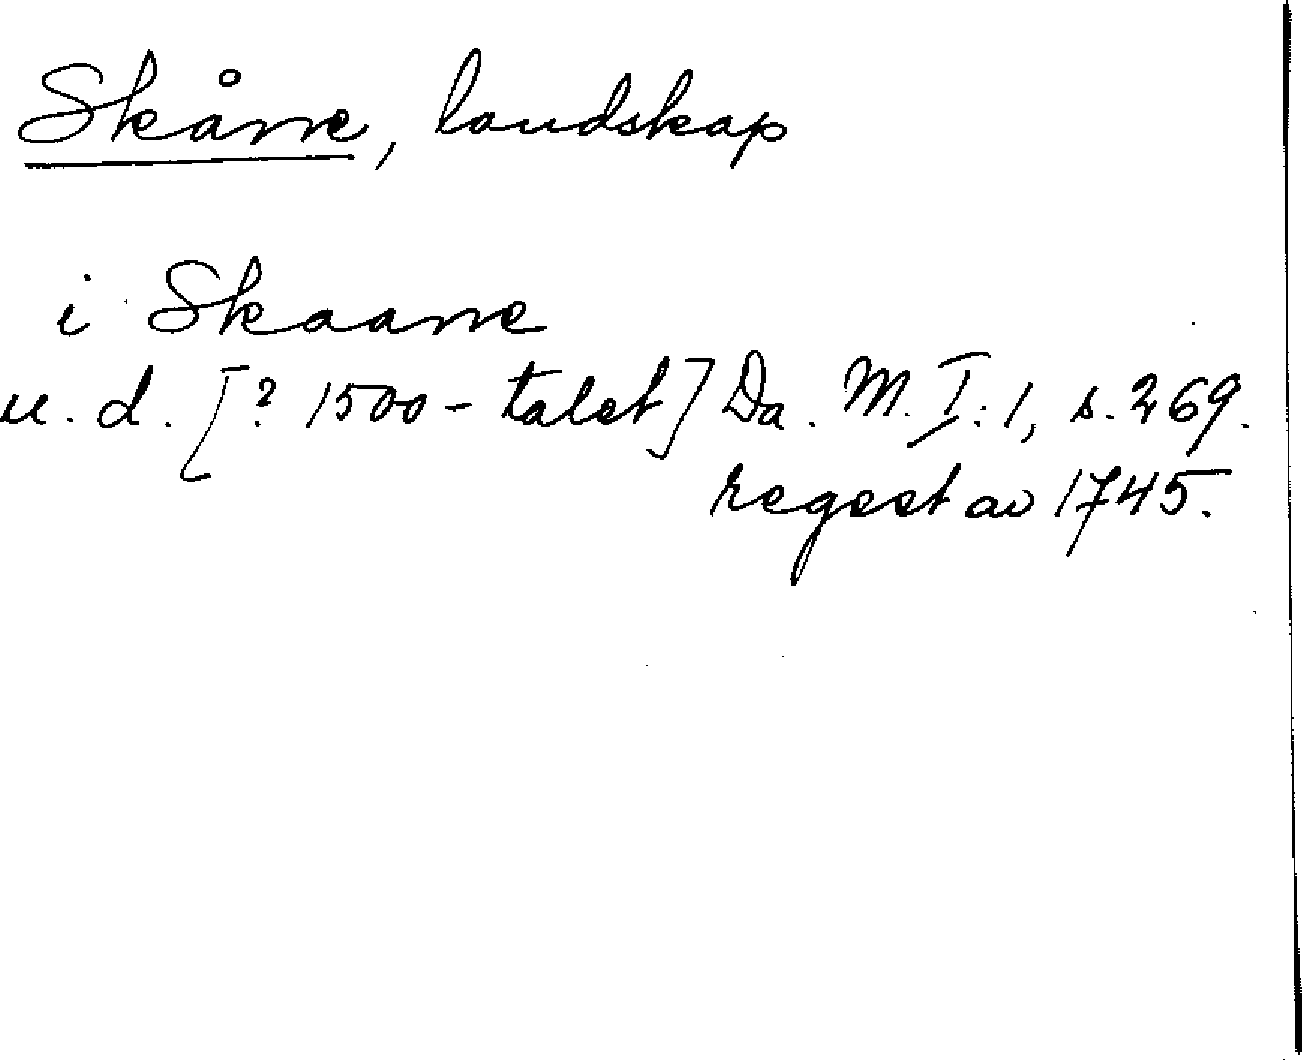 Skåne, landskap
i Skaane
u. d. [? 1500-talet] Da. M. I:1, s. 269.
regest av 1745.